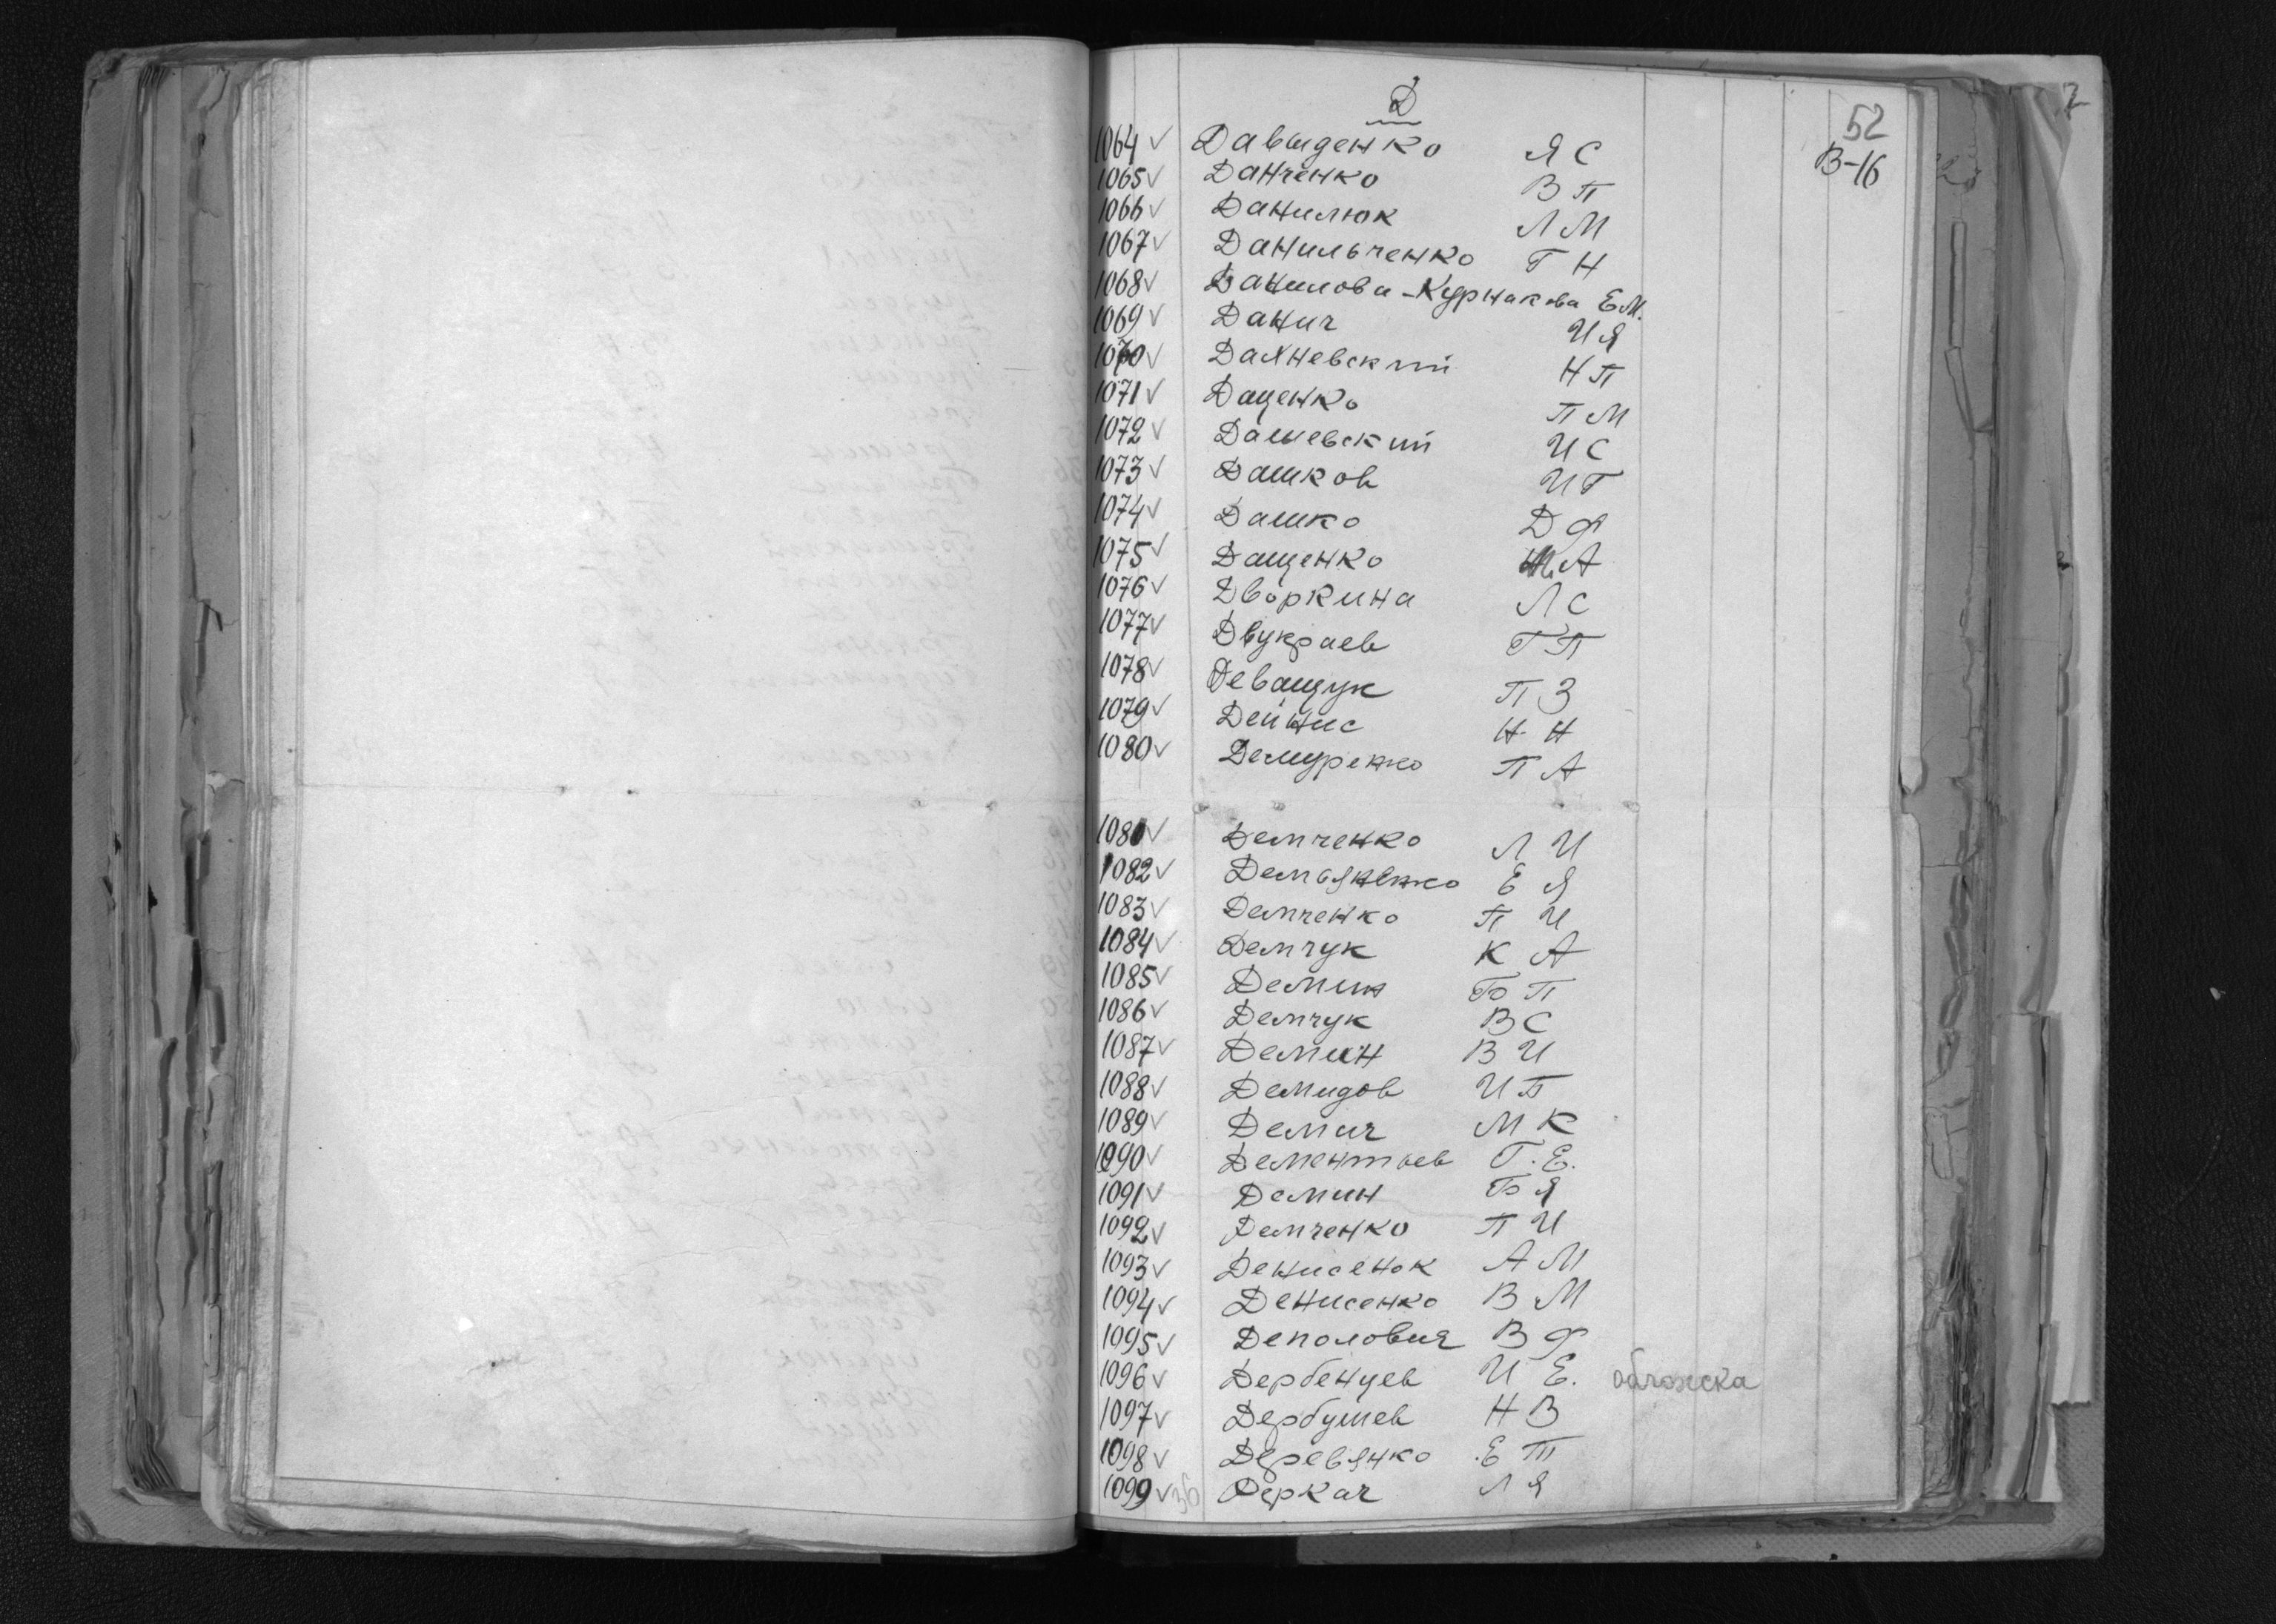 Д
52
В-16
1064 ✓ Давыденко Я С
1065 ✓ Данченко В П
1066 ✓ Данилюк Л М
1067 ✓ Данильченко Г Н
1068 ✓ Данилова-Курнакова Е.М.
1069 ✓ Данич И Я
1070 ✓ Дахневский Н П
1071 ✓ Даценко П М
1072 ✓ Дашевский И С
1073 ✓ Дашков И Г
1074 ✓ Дашко Д Ф
1075 ✓ Дащенко А
1076 ✓ Дворкина Л С
1077 ✓ Двукраев Г П
1078 ✓ Деващук П З
1079 ✓ Дейнис Н Н
1080 ✓ П А
1081 ✓ Демченко Л И
1082 ✓ Демьяненко Е Я
1083 ✓ Демченко П И
1084 ✓ Демчук К А
1085 ✓ Демин Б П
1086 ✓ Демчук В С
1087 ✓ Демин В И
1088 ✓ Демидов И П
1089 ✓ Демич М К
1090 ✓ Дементьев Г.Е.
1091 ✓ Демин Б Я
1092 ✓ Демченко П И
1093 ✓ Денисенок А М
1094 ✓ Денисенко В М
1095 ✓ Деполович В Ф
1096 ✓ Дербенцев И Е. обложка
1097 ✓ Дербушев Н В
1098 ✓ Деревянко Е Т
1099 ✓ 36 Деркач Л Я